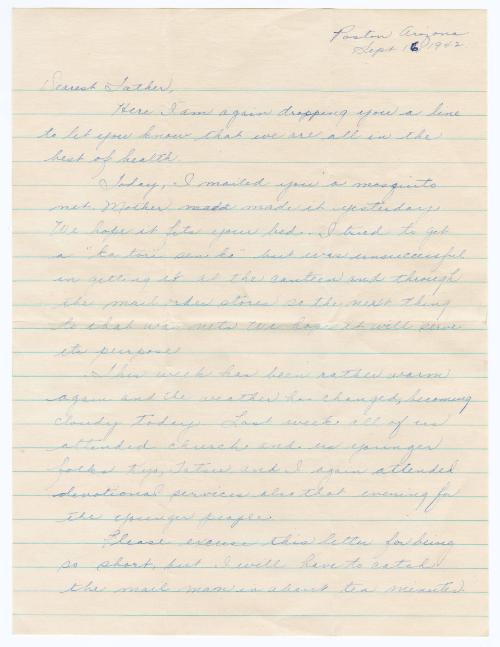 Poston Arizona
Sept 16, 1942.
Dearest Father,
Here I am again dropping you a line
to let you know that we are all in the
best of health.
Today, I mailed you a mosquito
net. Mother made made it yesterday
We hope it fits your bed. I tried to get
a "ka tori senko" but was unsuccessful
in getting it at the canteen and through
the mail order stores so the next thing
to that was nets. We hope it will serve
its purpose
This week has been rather warm
again and the weather has changed, becoming
cloudy today. Last week all of us
attended church and us younger
folks Kiyo, Tatsu and I again attended
devotional services also that evening for
the younger people.
Please excuse this letter for being
so short, but I will have to catch
the mail man in about ten minutes.